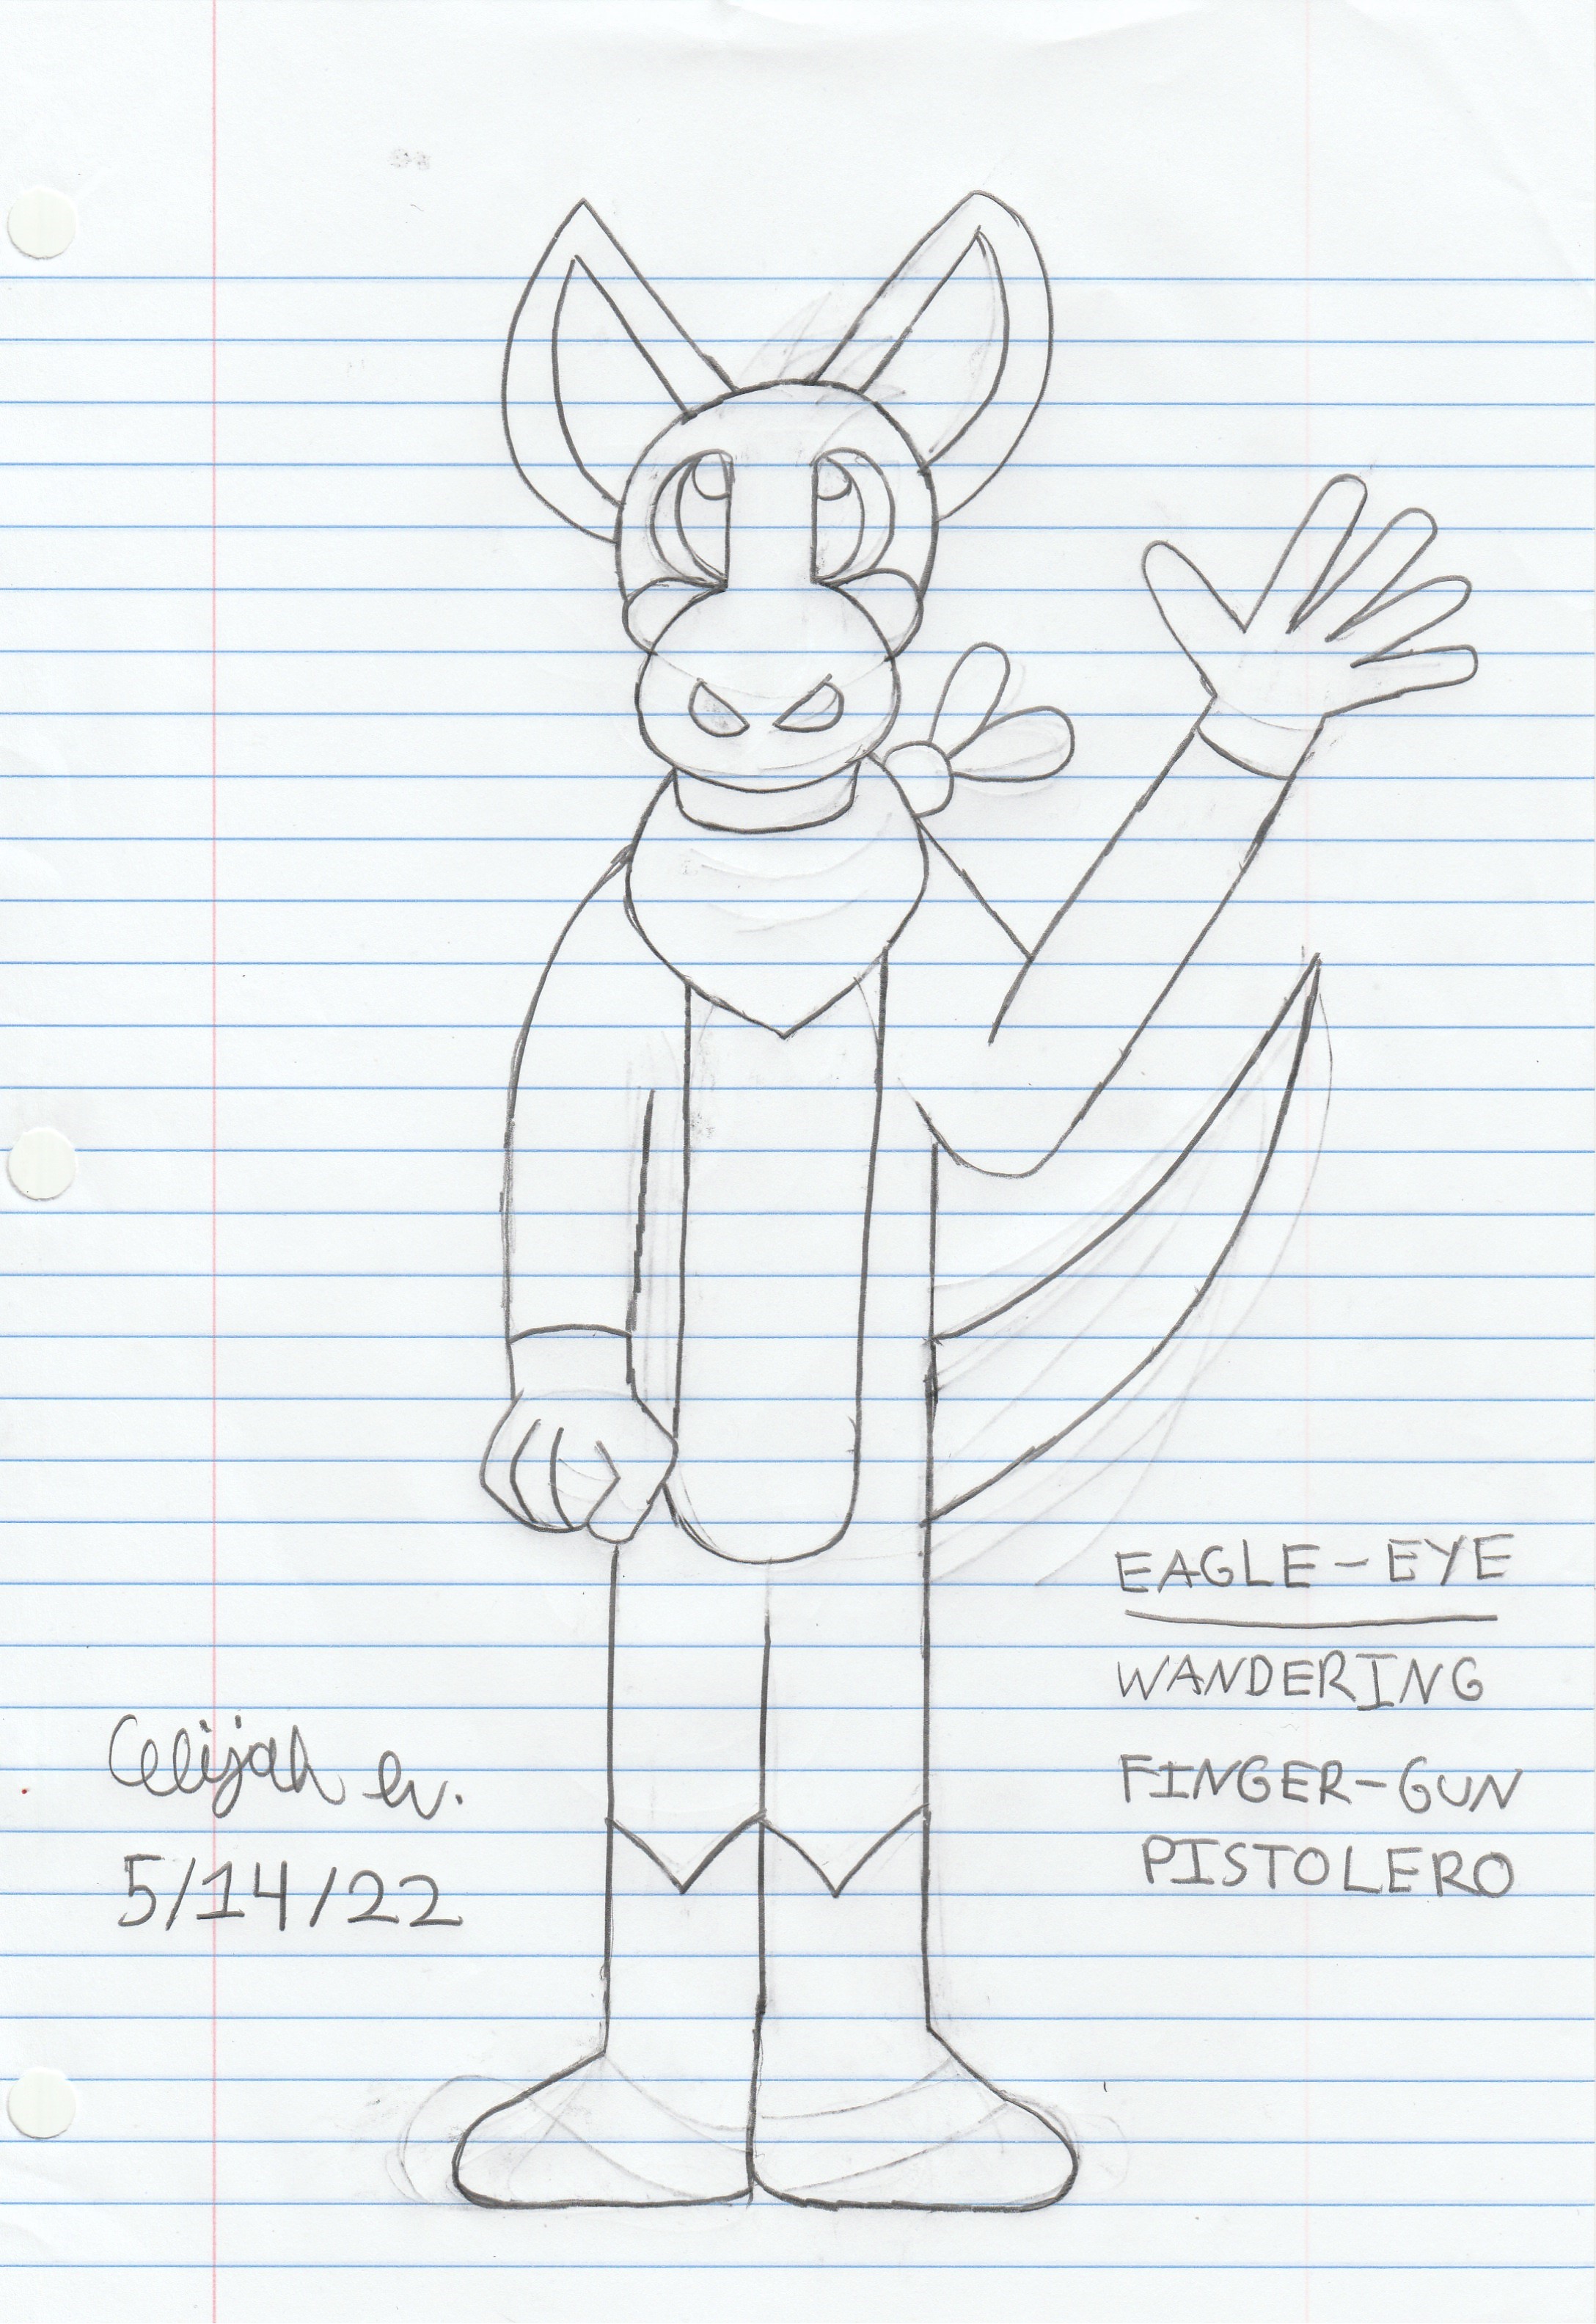 EAGLE-EYE
WANDERING
FINGER-GUN
PISTOLERO
Elijah W.
5/14/22